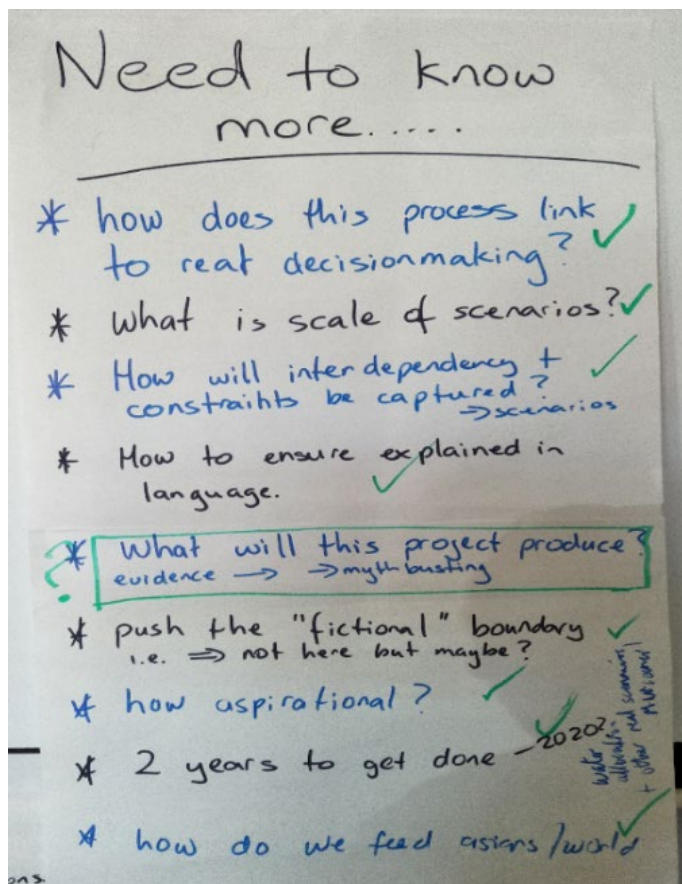 Need to know
more.....
* how does this process link
to real decisionmaking?
* What is scale of scenarios?
* How will interdependency +
constraints be captured?
→ scenarios
* How to ensure explained in
language.
? * What will this project produce?
evidence → → myth busting
* push the "fictional" boundary
i.e. ⇒ not here but maybe?
* how aspirational?
* 2 years to get done - 2020?
water
+ other real scenarios
* how do we feed asians/world
ons